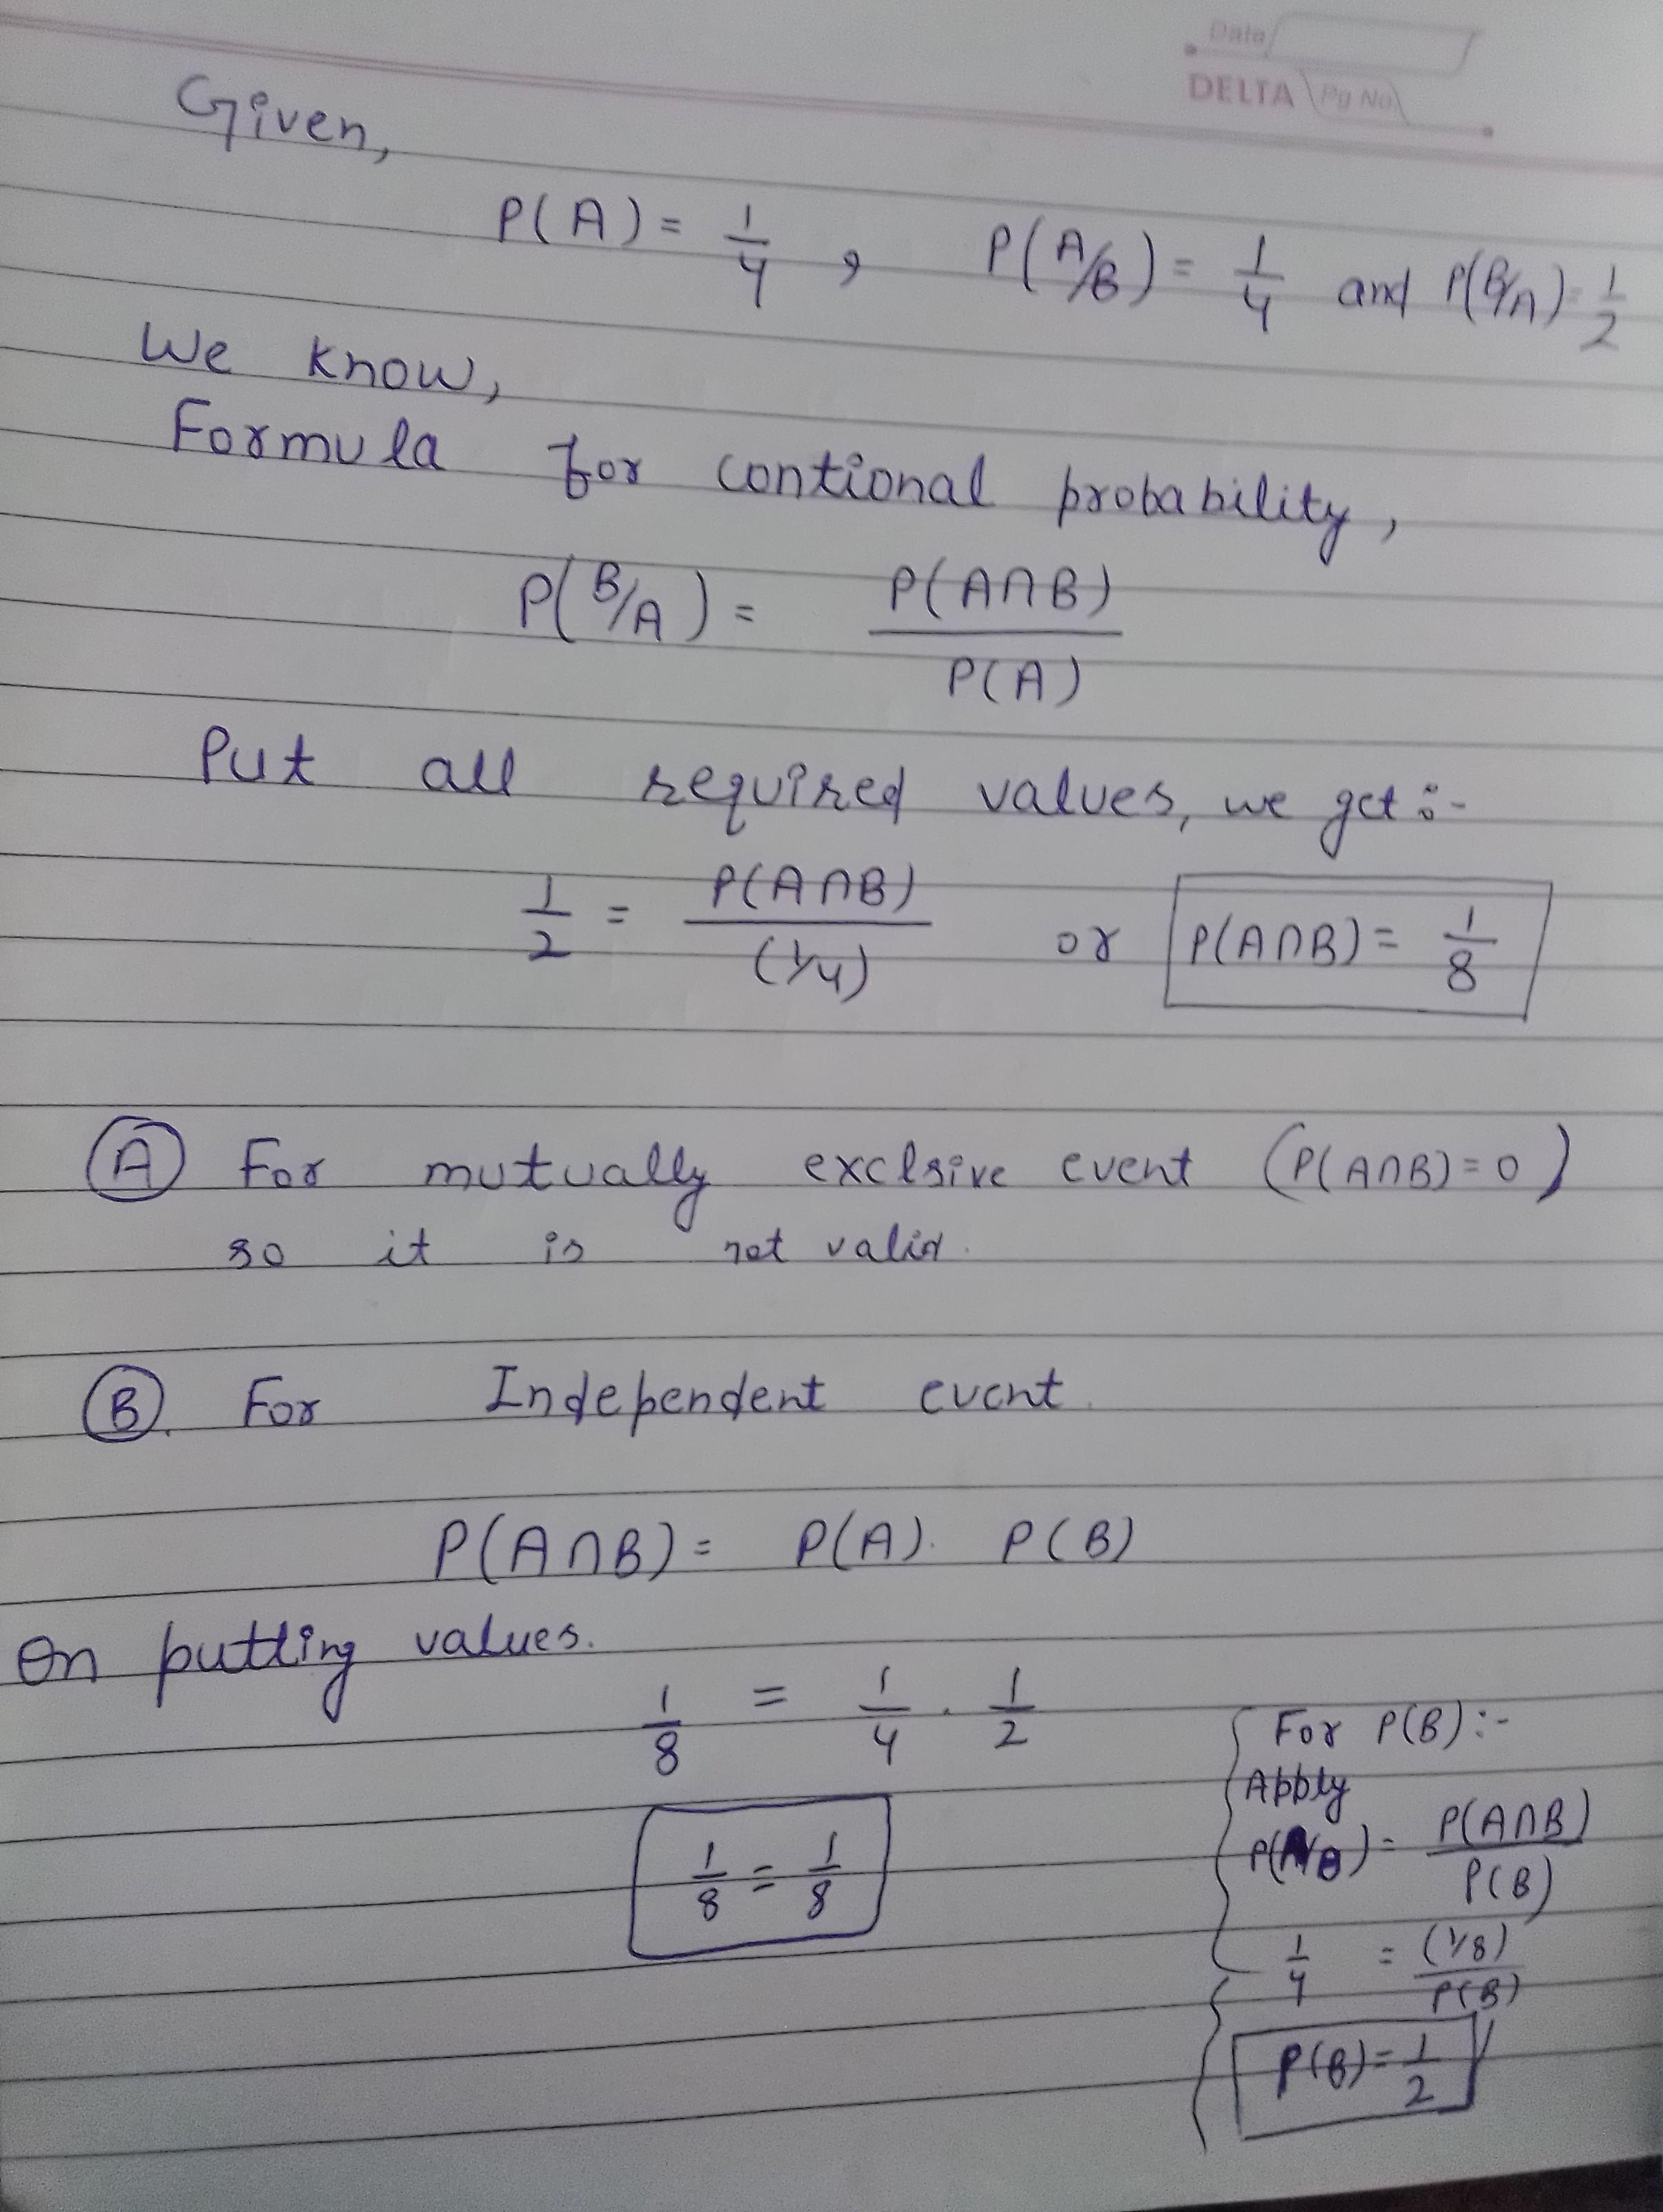 Date
DELTA Pg No
Given,
P(A) = 1/4 , P(A/B) = 1/4 and P(B/A) = 1/2
We know,
Formula for contional probability,
P(B/A) = P(A∩B)/P(A)
Put all required values, we get :-
1/2 = P(A∩B)/(1/4) or P(A∩B) = 1/8
(A) For mutually exclsive event (P(A∩B) = 0)
so it is not valid.
(B). For Independent event.
P(A∩B) = P(A). P(B)
On putting values.
1/8 = 1/4 . 1/2
1/8 = 1/8
For P(B) :-
Apply
P(A/B) = P(A∩B)/P(B)
1/4 = (1/8)/P(B)
P(B) = 1/2